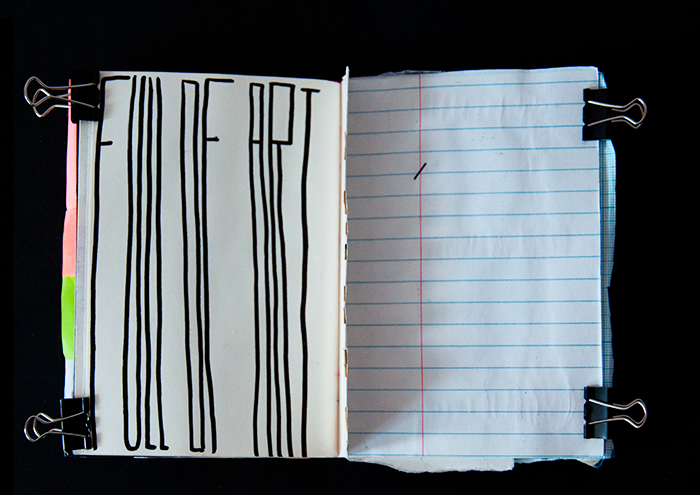 FULL OF ART